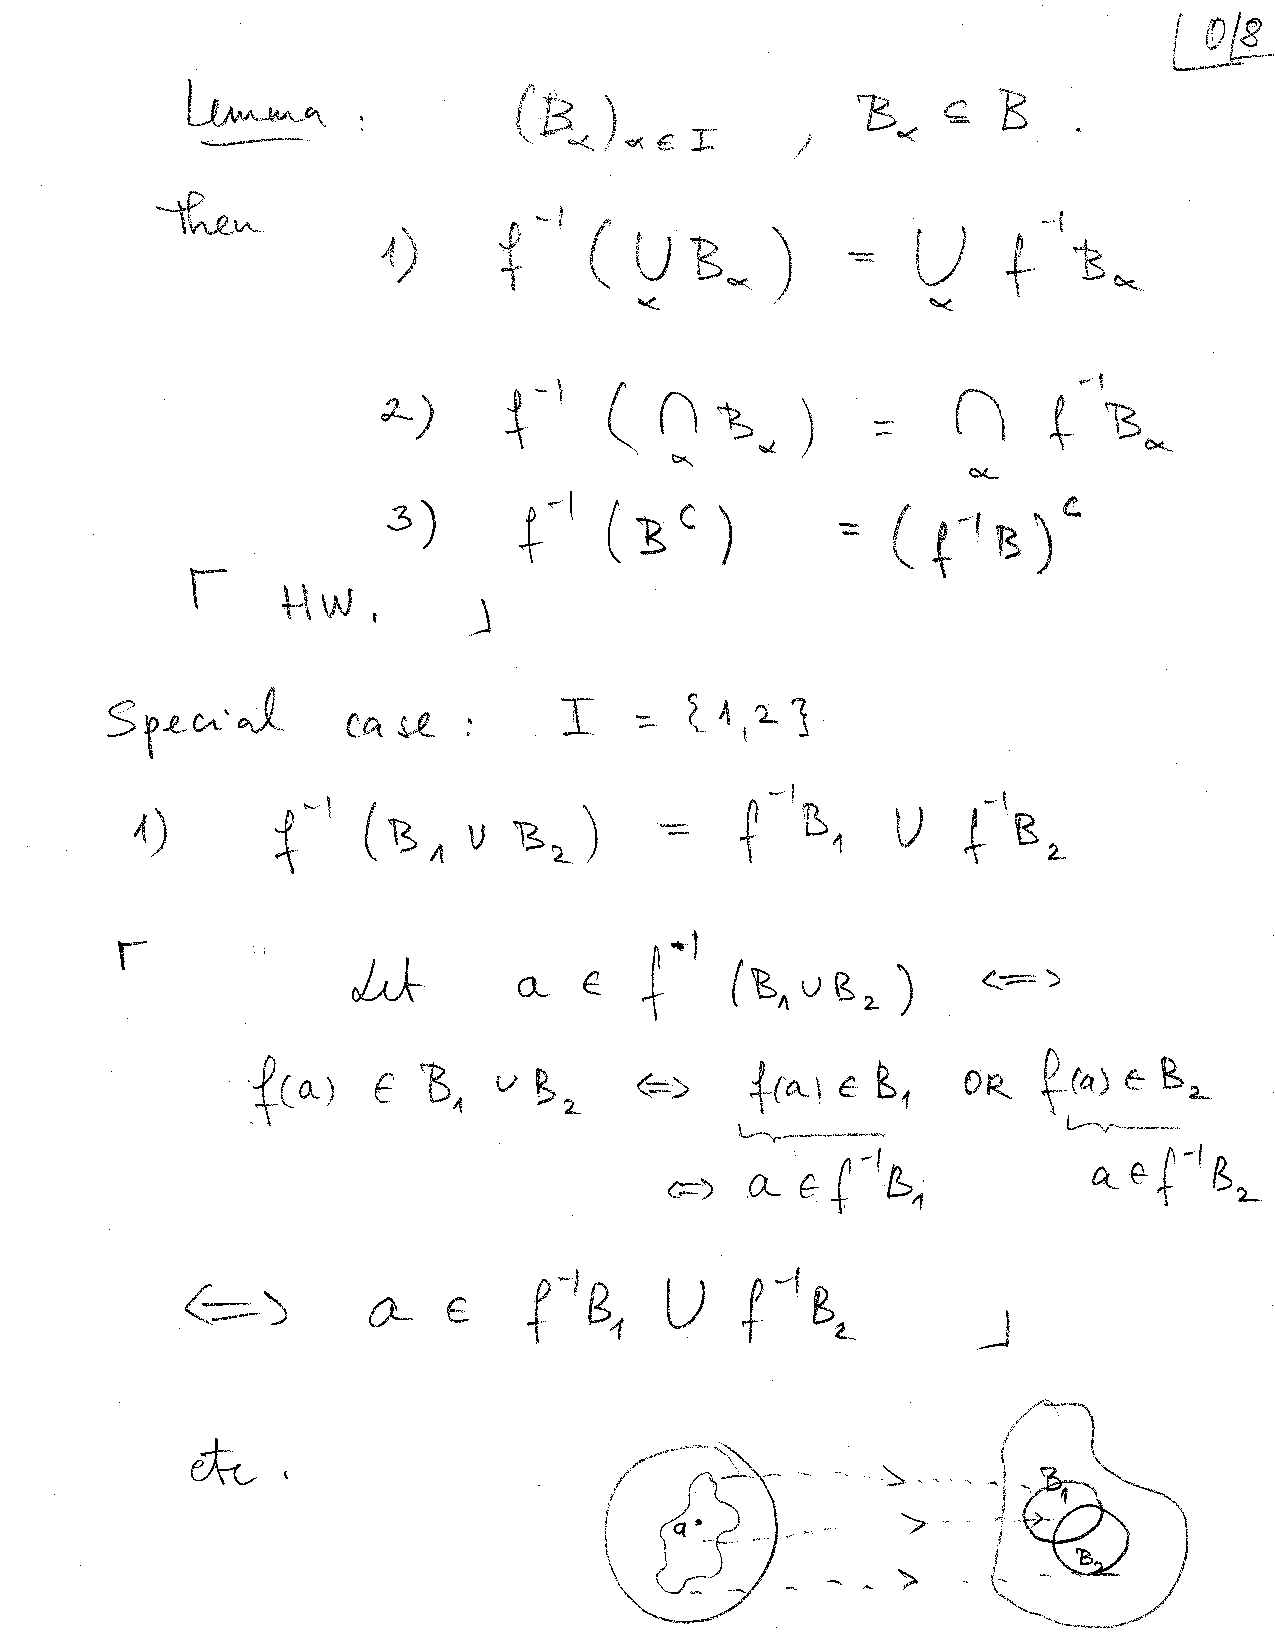 0/8
Lemma : (B_α)_{α ∈ I} , B_α ⊆ B .
then 1) f⁻¹ ( ∪_α B_α ) = ∪_α f⁻¹ B_α
2) f⁻¹ ( ∩_α B_α ) = ∩_α f⁻¹ B_α
3) f⁻¹ ( B^c ) = ( f⁻¹ B )^c
⌈ HW. ⌋
Special case : I = {1,2}
1) f⁻¹ (B₁ ∪ B₂) = f⁻¹B₁ ∪ f⁻¹B₂
⌈ Let a ∈ f⁻¹ (B₁ ∪ B₂) ⟺
f(a) ∈ B₁ ∪ B₂ ⟺ f(a) ∈ B₁ OR f(a) ∈ B₂
⟺ a ∈ f⁻¹B₁ a ∈ f⁻¹B₂
⟺ a ∈ f⁻¹B₁ ∪ f⁻¹B₂ ⌋
etc .
a
B₁
B₂